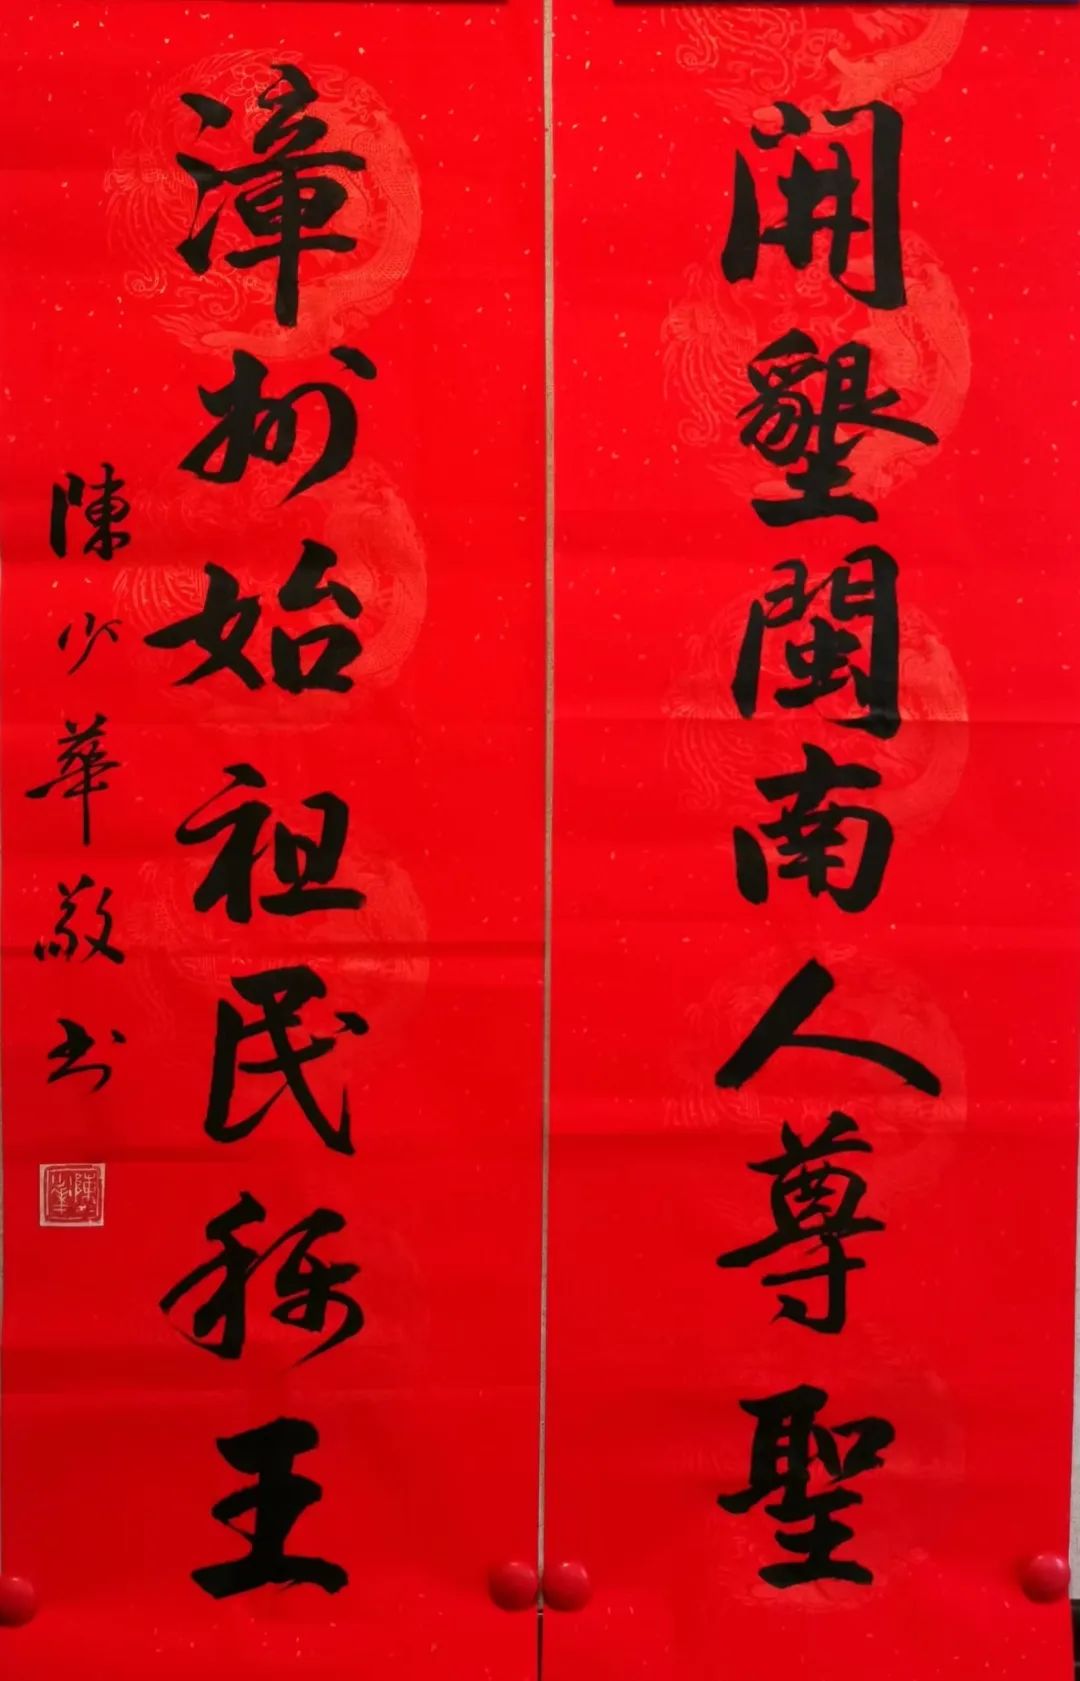 開墾閩南人尊聖
漳州始祖民称王
陳少華敬书
陳少華